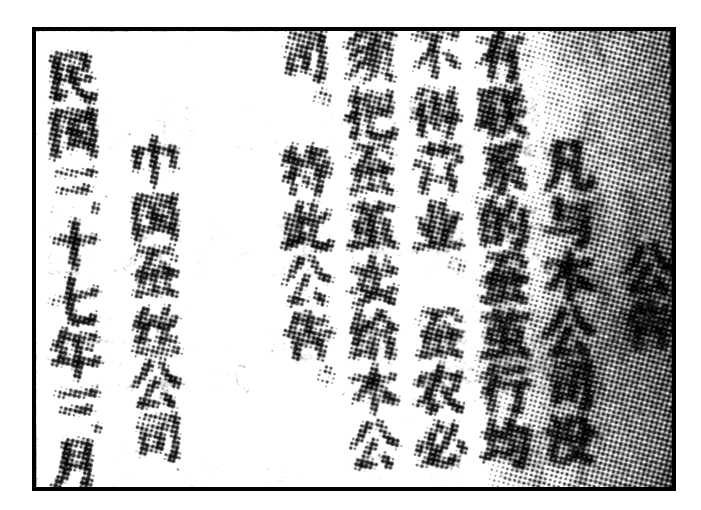 公告
凡与本公司没
有联系的蚕茧行均
不得营业。蚕农必
须把蚕茧卖给本公
司。特此公告。
中国蚕丝公司
民国三十七年三月